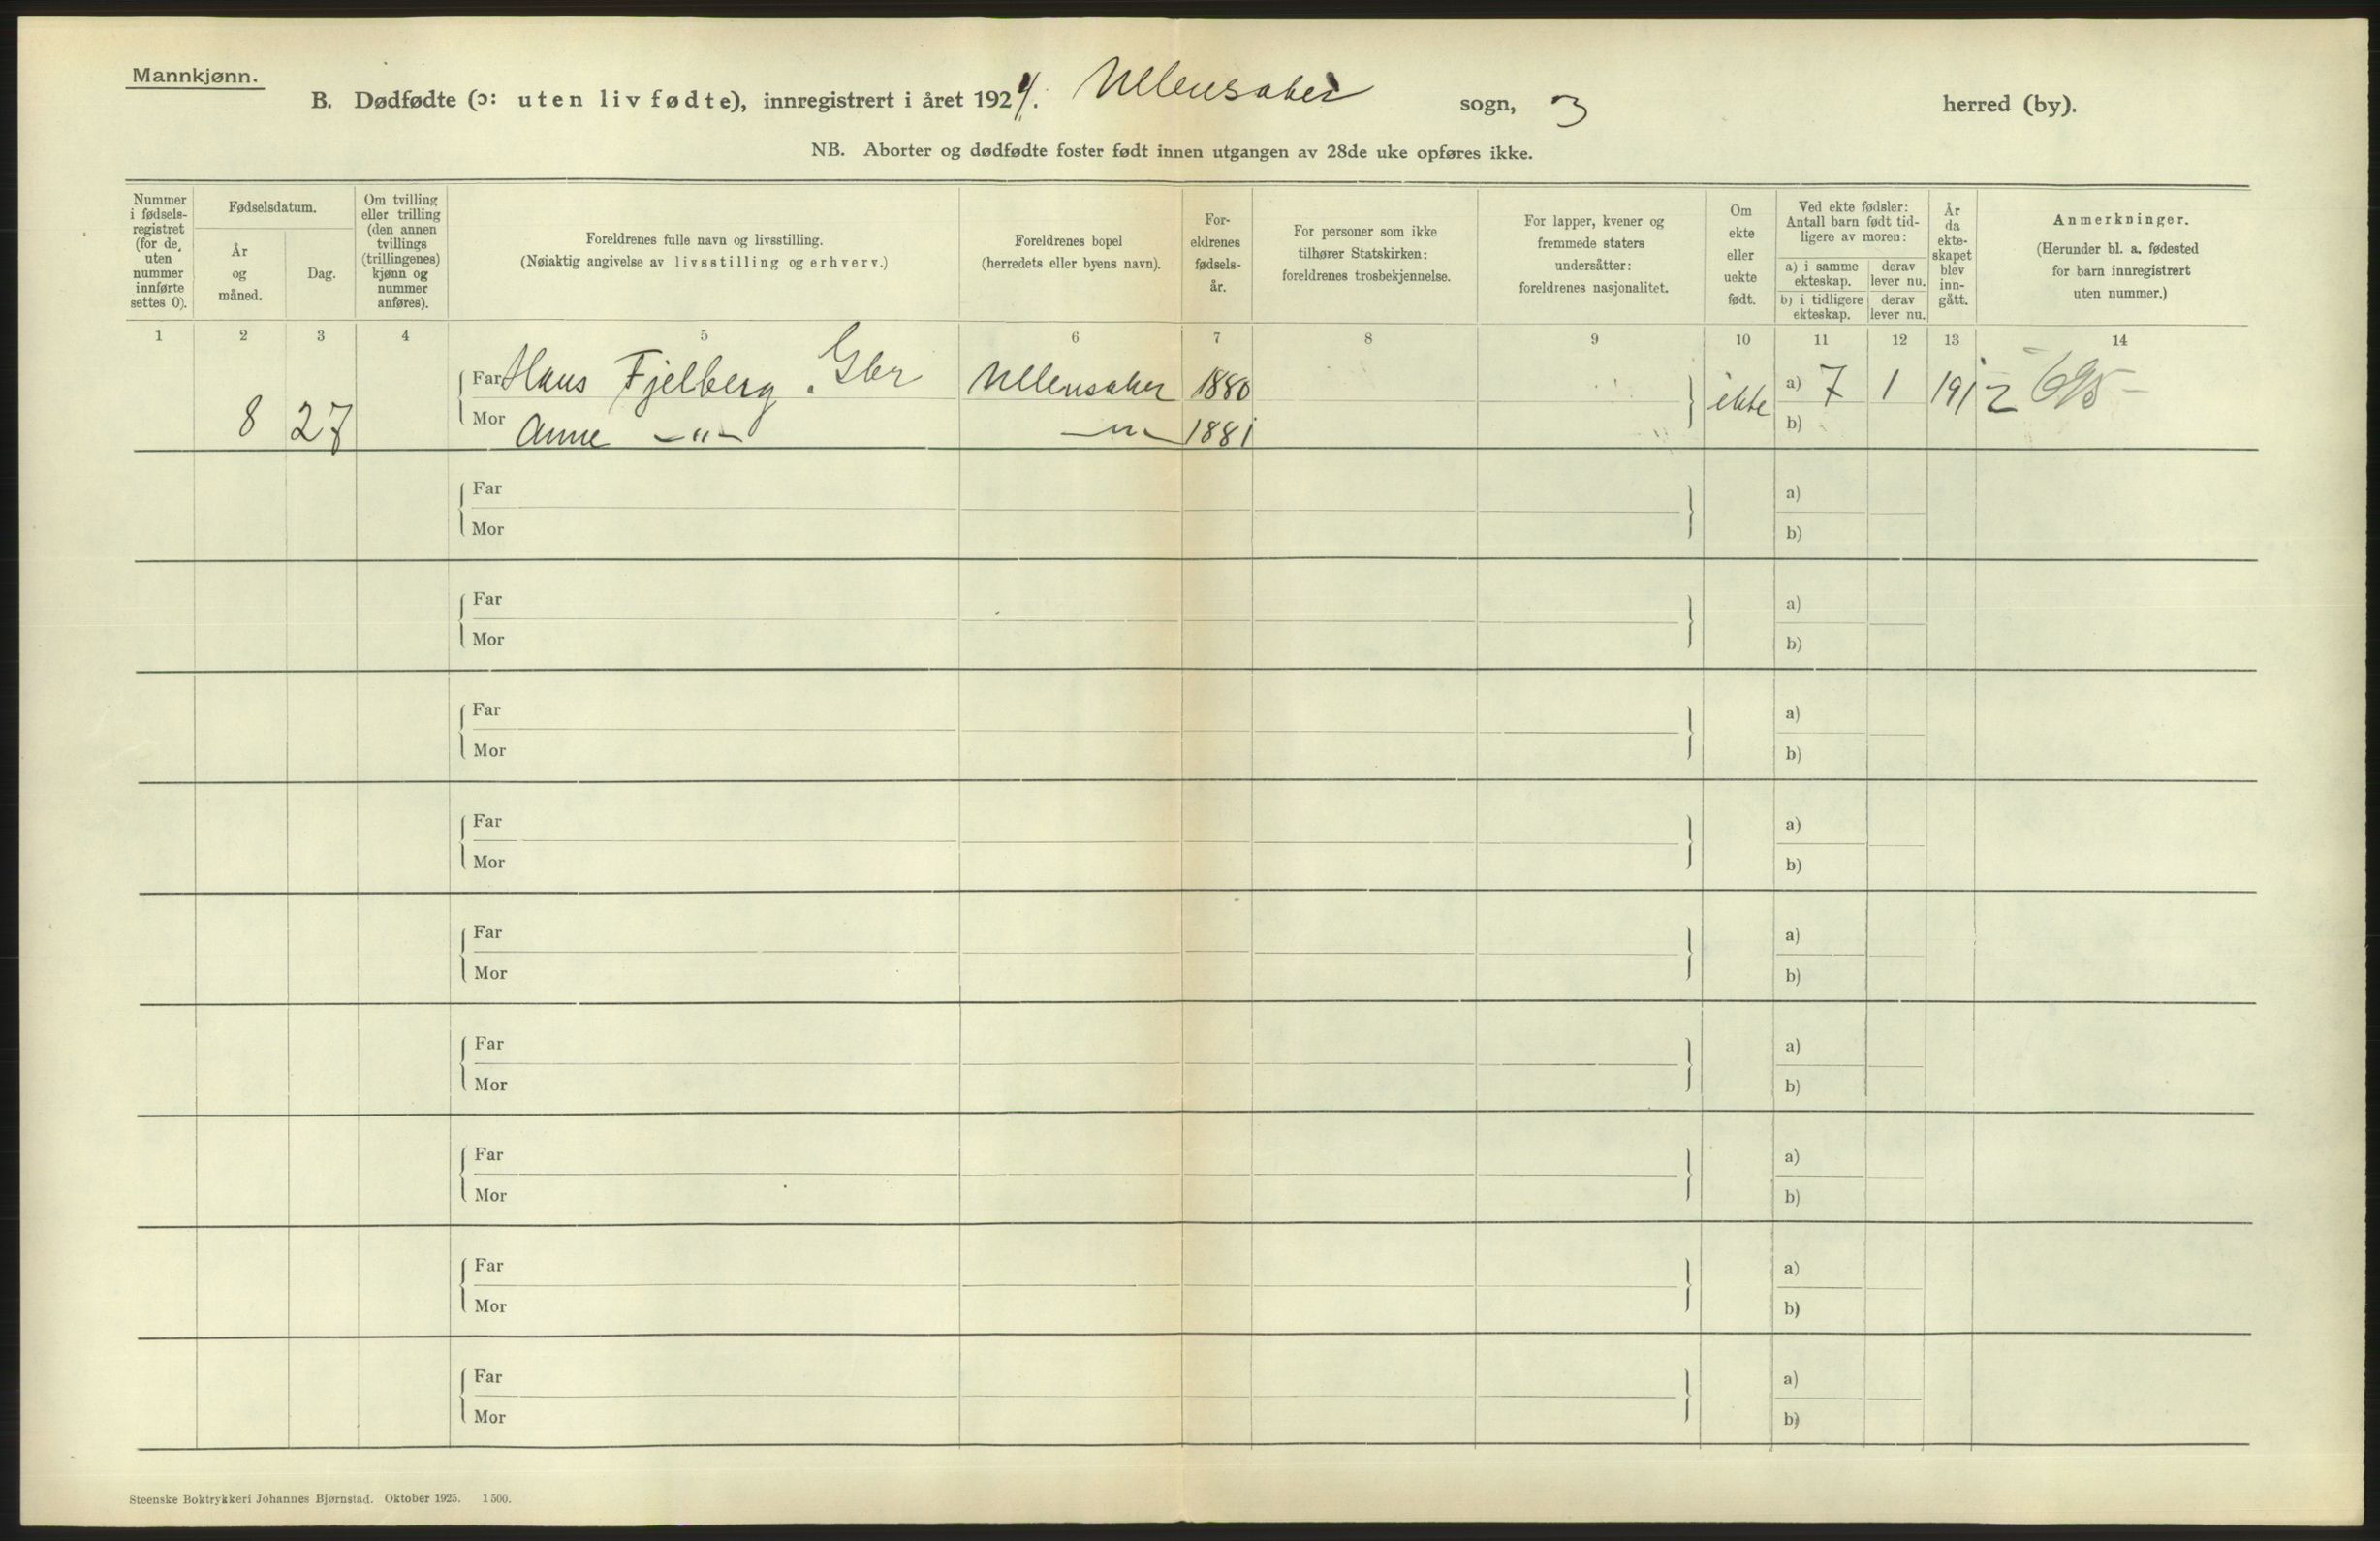 Mannkjønn.
B. Dødfødte (ɔ: uten liv fødte), innregistrert i året 192 Ullensaker sogn, 3 herred (by).
NB. Aborter og dødfødte foster født innen utgangen av 28de uke opføres ikke.
Nummer i fødsels- registret (for de, uten nummer innførte settes 0).
Fødselsdatum.
År og måned.
Dag.
Om tvilling eller trilling (den annen tvillings (trillingenes) kjønn og nummer anføres).
Foreldrenes fulle navn og livsstilling.
(Nøiaktig angivelse av livsstilling og erhverv.)
Foreldrenes bopel
(herredets eller byens navn).
For- eldrenes fødsels- år.
For personer som ikke tilhører Statskirken: foreldrenes trosbekjennelse.
For lapper, kvener og fremmede staters undersåtter: foreldrenes nasjonalitet.
Om ekte eller uekte født.
Ved ekte fødsler: Antall barn født tid- ligere av moren:
a) i samme ekteskap.
derav lever nu.
b) i tidligere ekteskap.
derav lever nu.
År da ekte- skapet blev inn- gått.
Anmerkninger.
(Herunder bl. a. fødested for barn innregistrert uten nummer.)
1 2 3 4 5 6 7 8 9 10 11 12 13 14
Far Hans Fjelberg. Gbr Ullensaker 1880 ekte a) 7 1 1912 695
8 27 Mor Anne -"- -"- 1881 b)
Far a)
Mor b)
Far a)
Mor b)
Far a)
Mor b)
Far a)
Mor b)
Far a)
Mor b)
Far a)
Mor b)
Far a)
Mor b)
Far a)
Mor b)
Far a)
Mor b)
Steenske Boktrykkeri Johannes Bjørnstad. Oktober 1925. 1500.